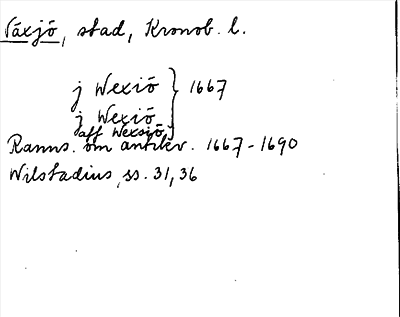 Växjö, stad, Kronob. l.
j Wexiö } 1667
j Wexiö
aff Wexsiö
Ranns. om antikv. 1667-1690
Wilstadius, ss. 31, 36